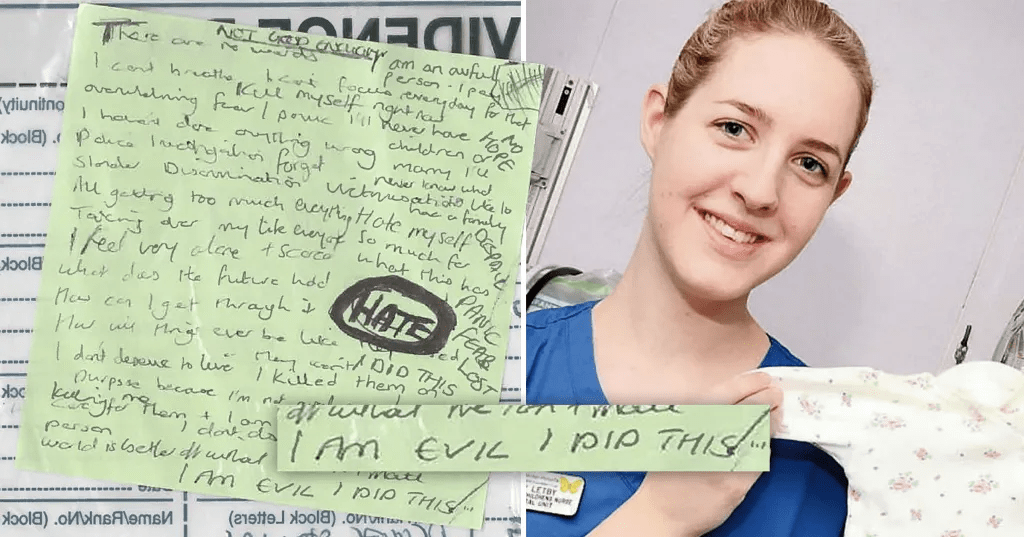 VIDENC
There are no words
NOT GOOD ENOUGH
am an awful
person - I pay
I can't breathe I can't focus everyday for that
Kill myself right now
overwhelming fear / panic I'll never have
NO HOPE
I haven't done anything wrong
children or
marry I'll
Police Investigation forget
never know what
Slander Discrimination Victimisation
like to
have a family
All getting too much everything
I Hate myself
DESPAIR
Taking over my life
so much for
I feel very alone + scared
what this has
What does the future hold
PANIC
How can I get through it
HATE
FEAR
How will things ever be like
LOST
I don't deserve to live They won't I DID THIS
I killed them on
purpose because I'm not
Killing me
care for them + I am
I don't
person
world is better off what
I AM EVIL I DID THIS
I AM EVIL I DID THIS
ontinuity)
No. (Block
Block
Name/Rank/No. (Block Letters)
Name/Rank/No. (Block
LETBY
CHILDRENS NURSE
AL UNIT